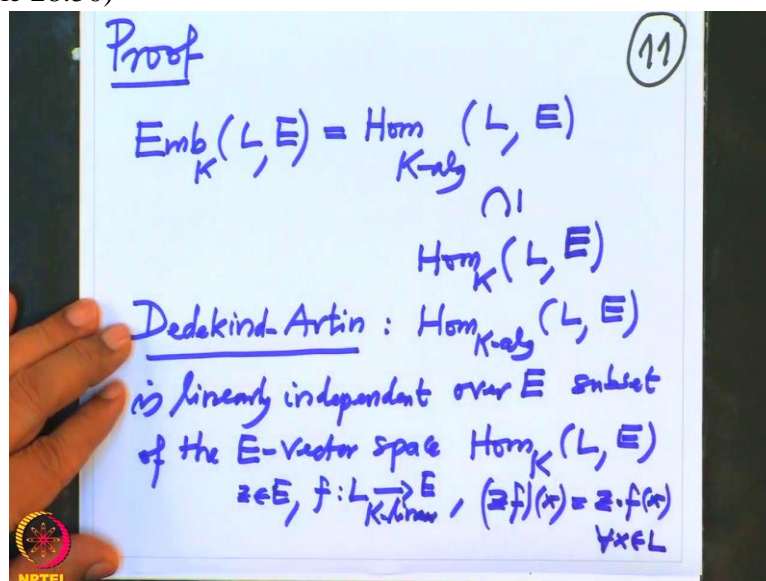 28:50)
Proof
11
Emb_K (L, E) = Hom_{K-alg} (L, E)
∩|
Hom_K (L, E)
Dedekind-Artin : Hom_{K-alg} (L, E)
is linearly independent over E subset
of the E-vector space Hom_K (L, E)
z∈E, f : L →_{K-linear} E, (zf)(x) = z·f(x)
∀x∈L
NPTEL